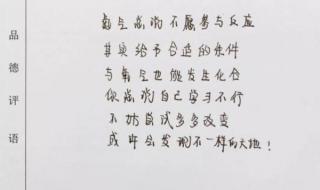 品德评语
氮气总说不愿参与反应
其实给予合适的条件
与氧气也能发生化合
你总说自己学习不行
不妨尝试多多改变
或许会发现不一样的天地！